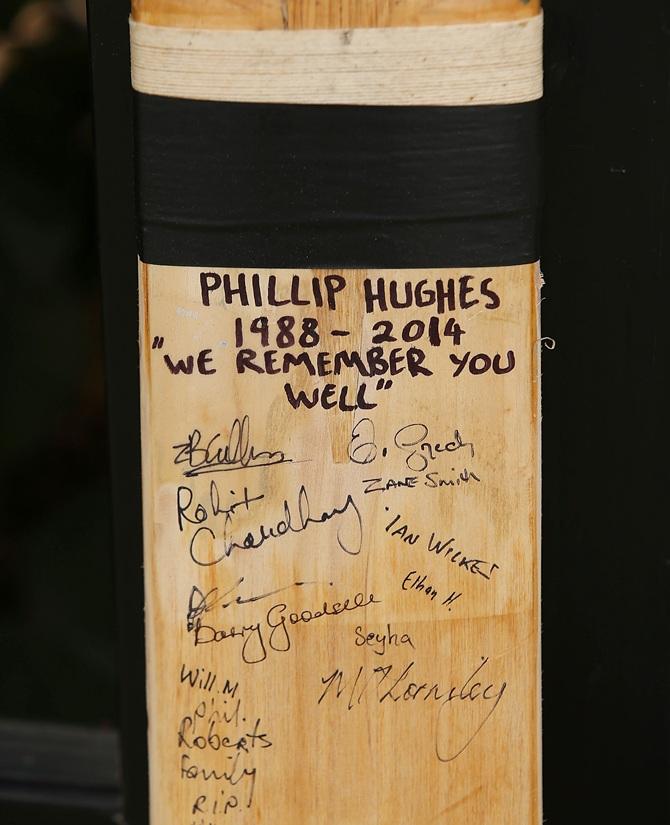 PHILLIP HUGHES
1988 - 2014
"WE REMEMBER YOU
WELL"
ZANE Smith
Rohit
Chaudhary
IAN WILKES
Ethan H.
Barry Goodelle
Seyha
Will.M
Phil.
Roberts
Family
R.I.P.